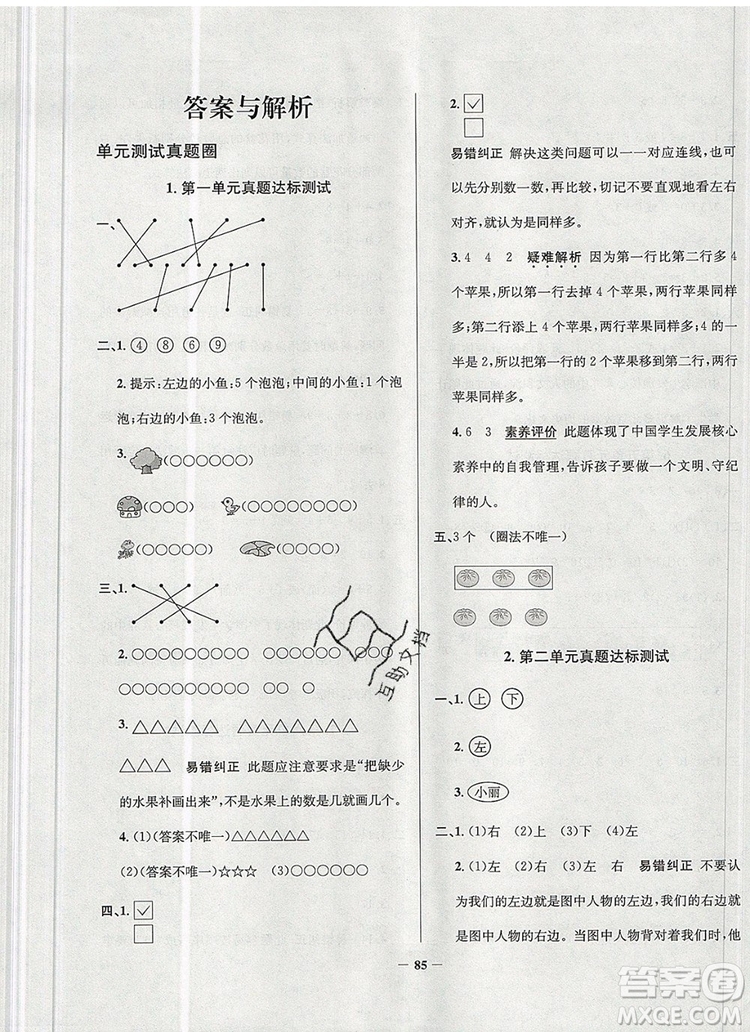 答案与解析
单元测试真题圈
1. 第一单元真题达标测试
一、
二、1. ④ ⑧ ⑥ ⑨
2. 提示:左边的小鱼:5 个泡泡;中间的小鱼:1 个泡
泡;右边的小鱼:3 个泡泡。
3.
三、1.
2.
3. △△△△△△ △△△△△△△
△△△ 易错纠正 此题应注意要求是“把缺少
的水果补画出来”,不是水果上的数是几就画几个。
4. (1)(答案不唯一)△△△△△△
(2)(答案不唯一)☆☆☆ (3)○○○○○○○
四、1. ☑
□
2. ☑
□
易错纠正 解决这类问题可以一一对应连线,也可
以先分别数一数,再比较,切记不要直观地看左右
对齐,就认为是同样多。
3. 4 4 2 疑难解析 因为第一行比第二行多 4
个苹果,所以第一行去掉 4 个苹果,两行苹果同样
多;第二行添上 4 个苹果,两行苹果同样多;4 的一
半是 2,所以把第一行的 2 个苹果移到第二行,两行
苹果同样多。
4. 6 3 素养评价 此题体现了中国学生发展核心
素养中的自我管理,告诉孩子要做一个文明、守纪
律的人。
五、3 个 (圈法不唯一)
2. 第二单元真题达标测试
一、1. 上 下
2. 左
3. 小丽
二、1. (1)右 (2)上 (3)下 (4)左
2. (1)左 右 (2)左 右 易错纠正 不要认
为我们的左边就是图中人物的左边,我们的右边就是
图中人物的右边。当图中人物背对着我们时,他
85
互助文档
答案圈
MXQE.COM